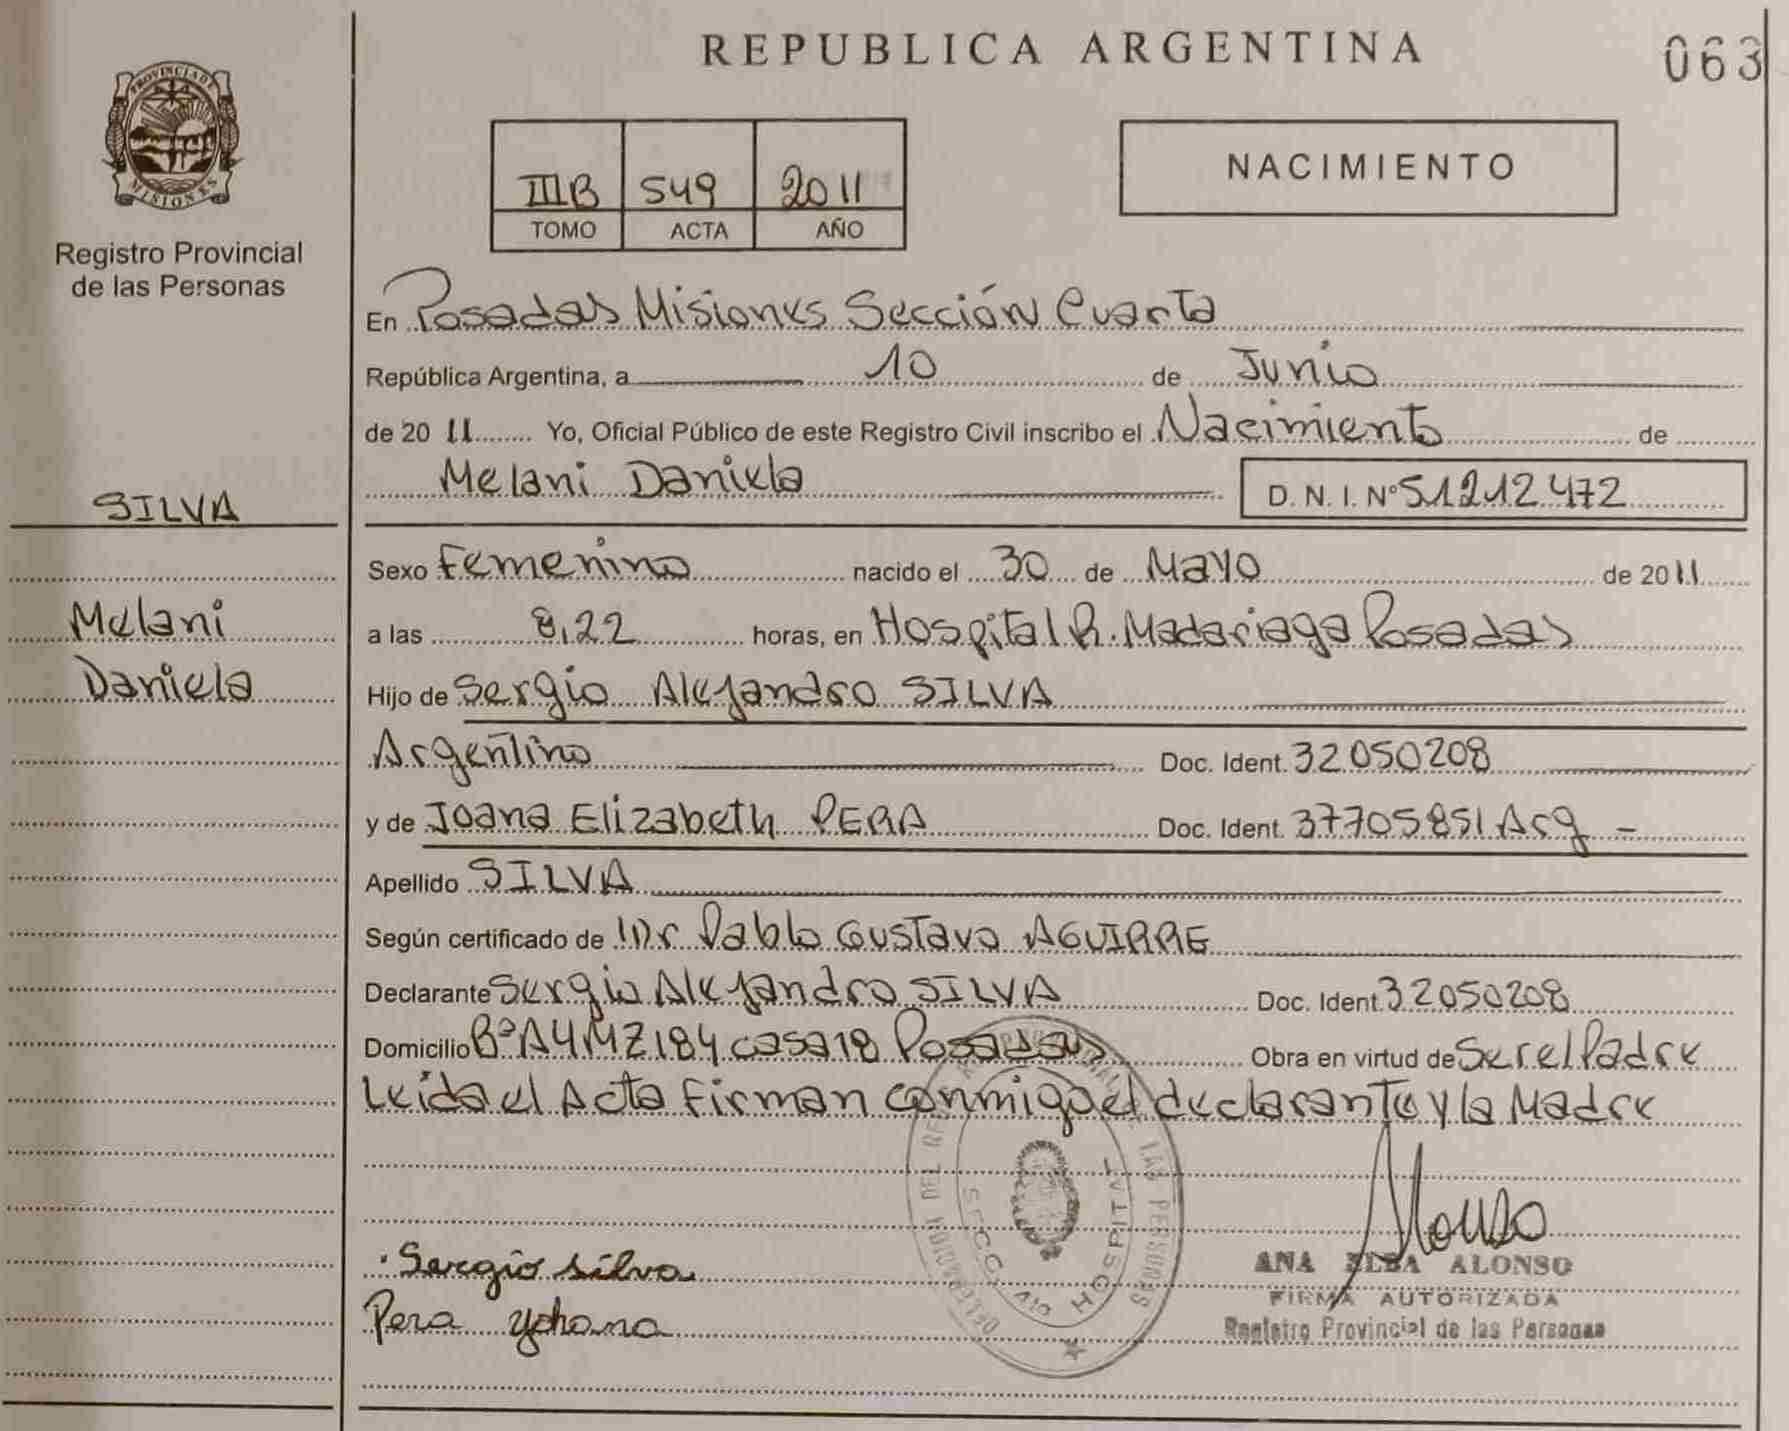 REPUBLICA ARGENTINA
063
PROVINCIA DE MISIONES
Registro Provincial
de las Personas
IIIB 549 2011
TOMO ACTA AÑO
NACIMIENTO
En Posadas Misiones Sección Cuarta
República Argentina, a 10 de Junio
de 2011 Yo, Oficial Público de este Registro Civil inscribo el Nacimiento de
Melani Daniela D. N. I. Nº 51212472
SILVA
Melani
Daniela
Sexo Femenino nacido el 30 de Mayo de 2011
a las 8,22 horas, en Hospital R. Madariaga Posadas
Hijo de Sergio Alejandro SILVA
Argentino Doc. Ident. 32050208
y de Joana Elizabeth PERA Doc. Ident. 37705851 Arg -
Apellido SILVA
Según certificado de Dr Pablo Gustavo AGUIRRE
Declarante Sergio Alejandro SILVA Doc. Ident. 32050208
Domicilio Bº A4 MZ 184 casa 18 Posadas Obra en virtud de Ser el Padre
Leida el Acta Firman conmigo el declarante y la Madre
Sergio Silva
Pera Yohana
Alonso
ANA ELBA ALONSO
FIRMA AUTORIZADA
Registro Provincial de las Personas
DELEGACION DEL LAS PERSONAS
HOSPITAL